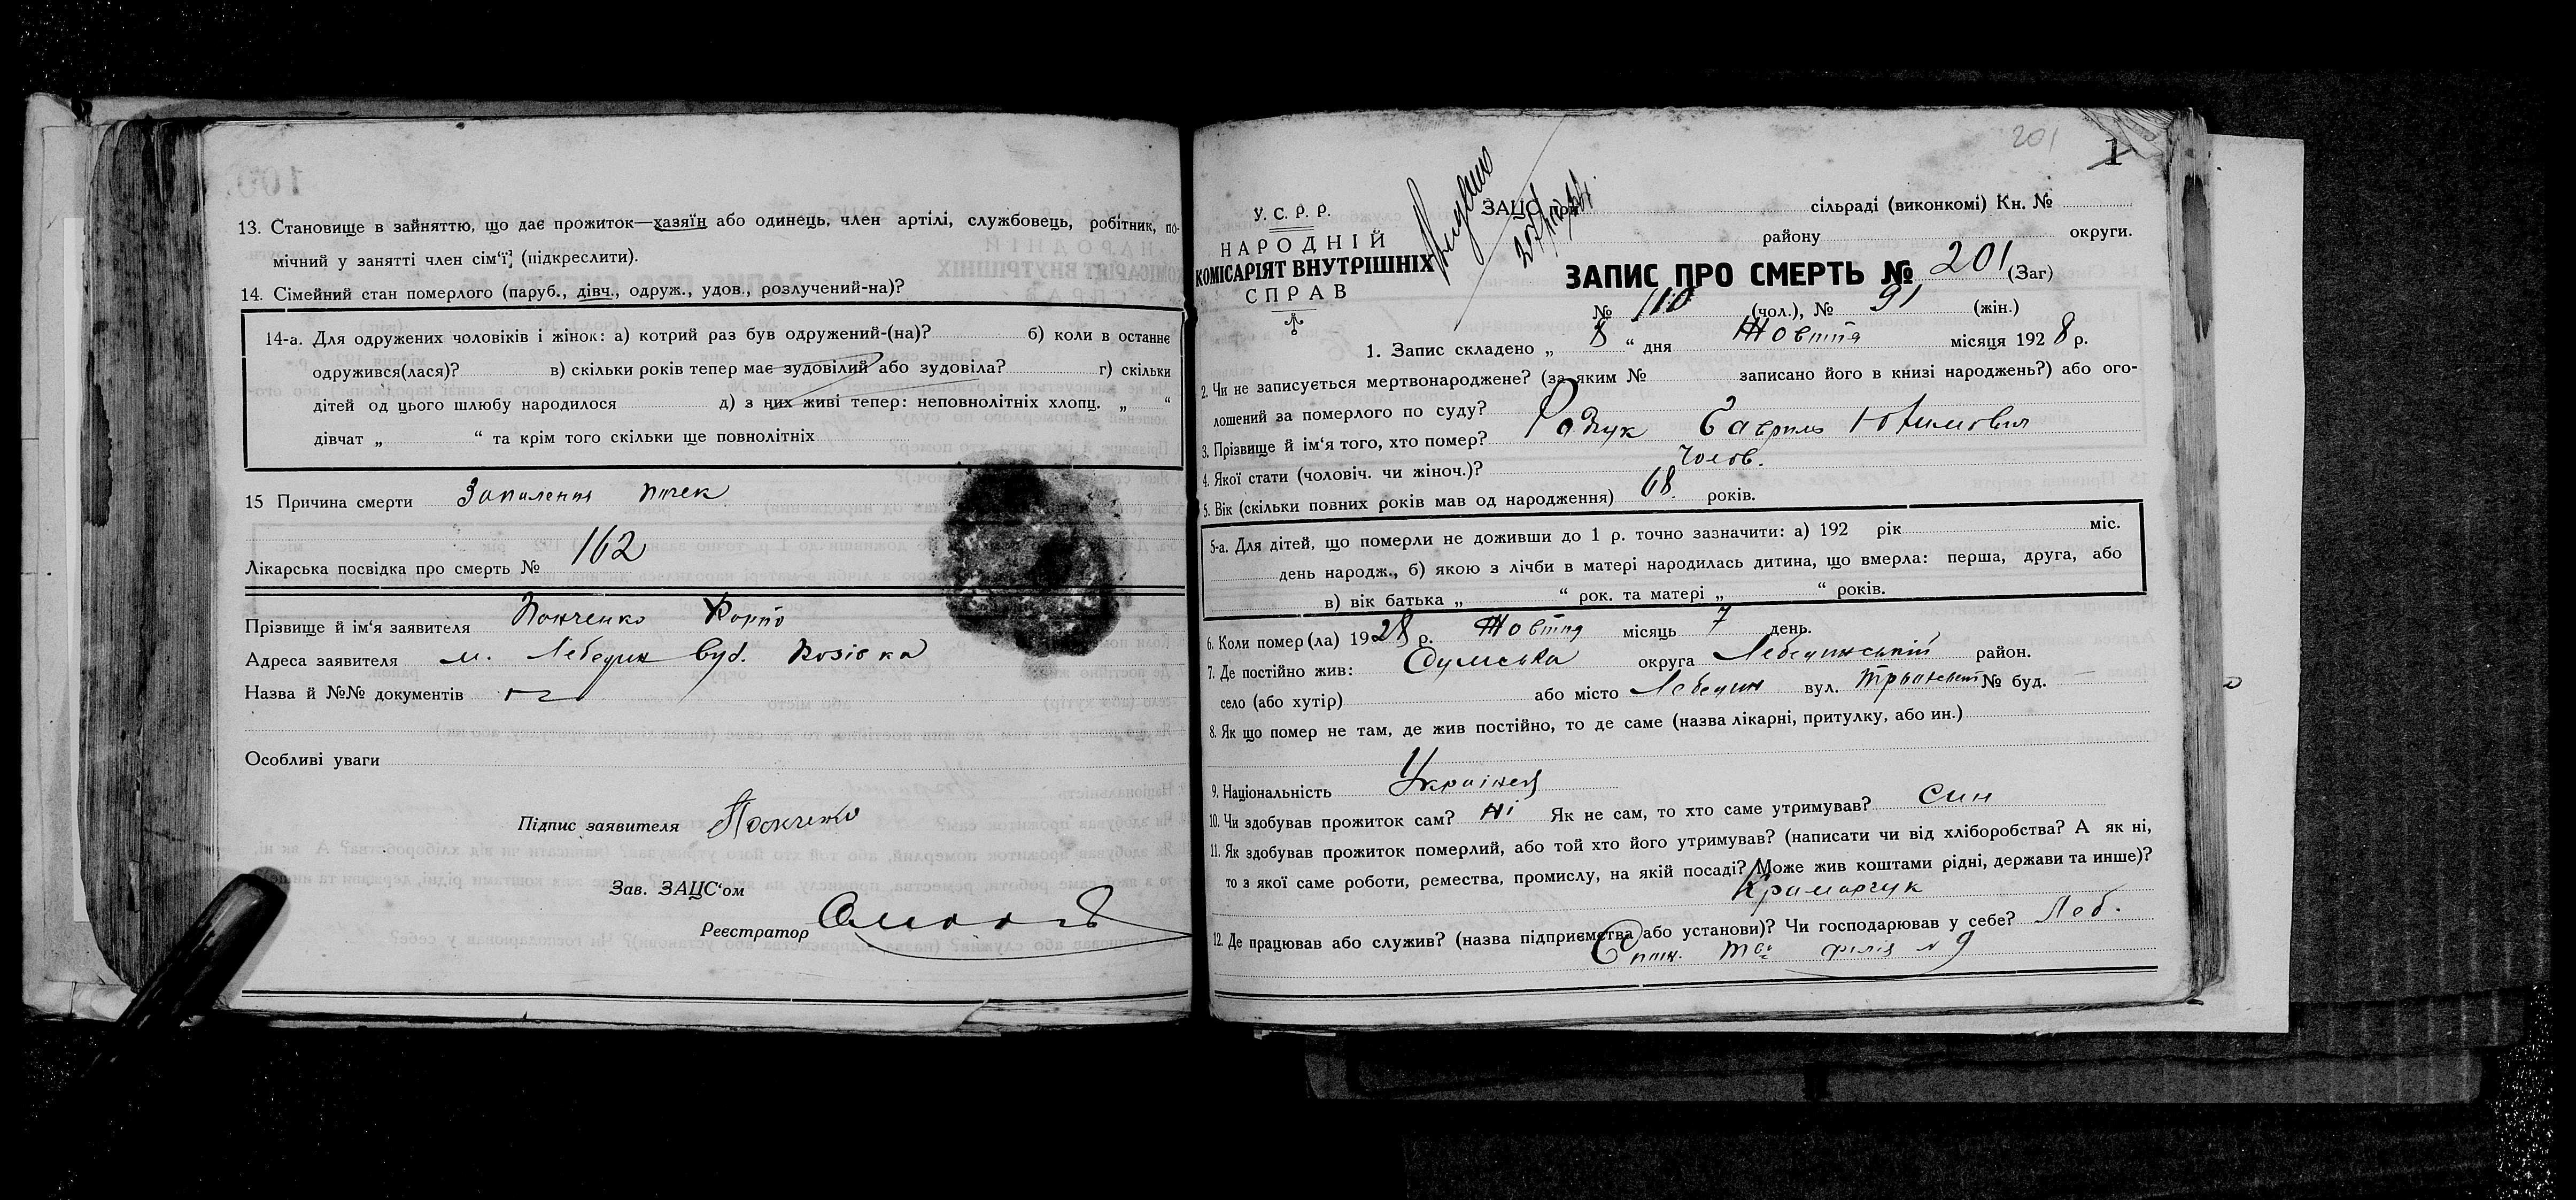 13. Становище в зайняттю, що дає прожиток—хазяїн або одинець, член артілі, службовець, робітник, по-
мічний у занятті член сім'ї, (підкреслити).
14. Сімейний стан померлого (паруб., дівч., одруж., удов., розлучений-на)?
14-а. Для одружених чоловіків і жінок: а) котрий раз був одружений-(на)? б) коли в останнє
одружився(лася)? в) скільки років тепер має зудовілий або зудовіла? г) скільки
дітей од цього шлюбу народилося д) з них живі тепер: неповнолітніх хлопц. „ “
дівчат „ “ та крім того скільки ще повнолітніх
15 Причина смерти Запалення
Лікарська посвідка про смерть № 162
Прізвище й ім'я заявителя Панченко
Адреса заявителя м. Лебедин вул.
Назва й №№ документів
Особливі уваги
Підпис заявителя Панченко
Зав. ЗАЦС'ом
Реєстратор
201
1
У. С. Р. Р.
НАРОДНІЙ
КОМІСАРІЯТ ВНУТРІШНІХ
СПРАВ
ЗАЦС при сільраді (виконкомі) Кн. №
району округи.
ЗАПИС ПРО СМЕРТЬ № 201 (Заг)
№ 110 (чол.), № 91 (жін.)
1. Запис складено „ 8 “ дня Жовтня місяця 1928 р.
2. Чи не записується мертвонароджене? (за яким № записано його в книзі народжень?) або ого-
лошений за померлого по суду?
3. Прізвище й ім'я того, хто помер? Гаврило Юхимович
4. Якої стати (чоловіч. чи жіноч.)? Чолов.
5. Вік (скільки повних років мав од народження) 68 років.
5-а. Для дітей, що померли не доживши до 1 р. точно зазначити: а) 192 рік міс.
день народж., б) якою з лічби в матері народилась дитина, що вмерла: перша, друга, або
в) вік батька „ “ рок. та матері „ “ років.
6. Коли помер(ла) 1928 р. Жовтня місяць 7 день.
7. Де постійно жив: Сумська округа Лебединський район.
село (або хутір) або місто Лебедин вул. № буд. —
8. Як що помер не там, де жив постійно, то де саме (назва лікарні, притулку, або ин.)
9. Національність Українец
10. Чи здобував прожиток сам? Ні Як не сам, то хто саме утримував? син
11. Як здобував прожиток померлий, або той хто його утримував? (написати чи від хліборобства? А як ні,
то з якої саме роботи, ремества, промислу, на якій посаді? Може жив коштами рідні, держави та инше)?
Крамарчук
12. Де працював або служив? (назва підприємства або установи)? Чи господарював у себе? Леб.
Спож. т-во філія № 9